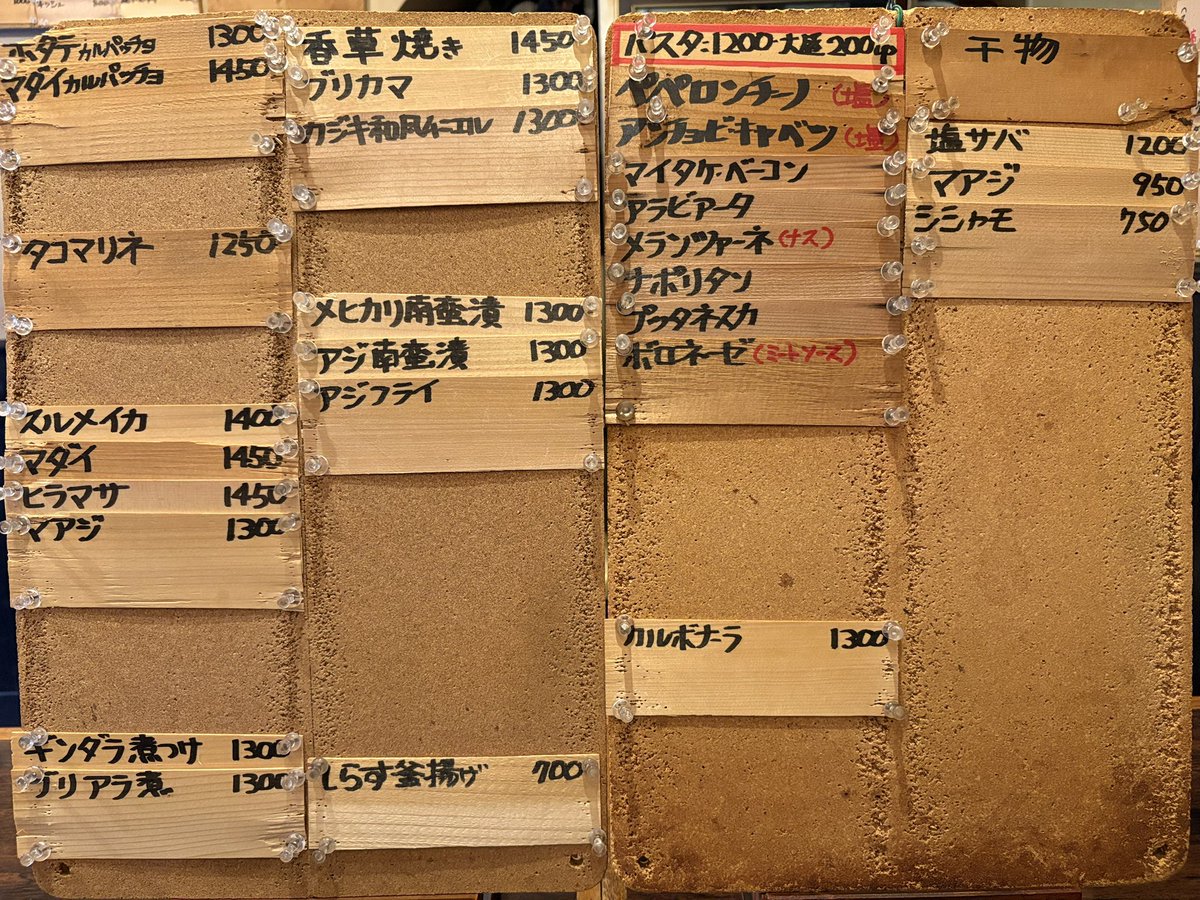 ホタテカルパッチョ 1300
マダイカルパッチョ 1450
タコマリネ 1250
スルメイカ 1400
マダイ 1450
ヒラマサ 1450
マアジ 1300
ギンダラ煮つけ 1300
ブリアラ煮 1300
香草焼き 1450
ブリカマ 1300
カジキ和風ムニエル 1300
メヒカリ南蛮漬 1300
アジ南蛮漬 1300
アジフライ 1300
しらす釜揚げ 700
パスタ:1200-大盛200up
ペペロンチーノ (塩)
アンチョビ・キャベツ (塩)
マイタケ・ベーコン
アラビアータ
メランツァーネ (ナス)
ナポリタン
プッタネスカ
ボロネーゼ (ミートソース)
カルボナーラ 1300
干物
塩サバ 1200
マアジ 950
シシャモ 750